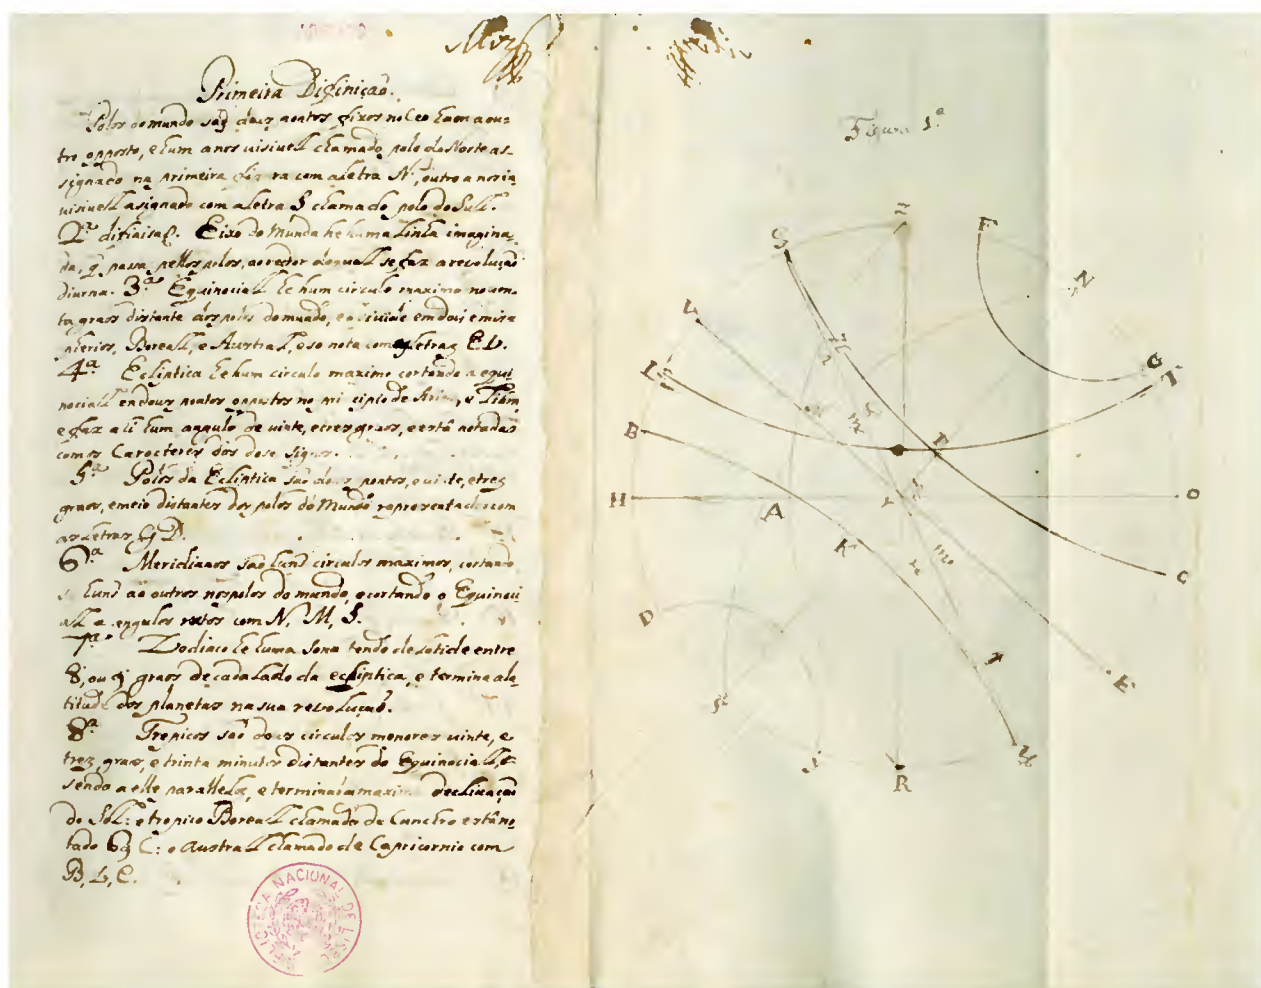 Primeira Difiniçaõ.
Polos do mundo saõ dous pontos fixos no Ceo hum a ou-
tro opposto, e hum a nos uisiuell chamado polo do Norte as-
signado na primeira fig ra com a letra N, outro a nos in
uisiuell asignado com a letra S chamado polo do Sull.
2.ª Eixo do Mundo he huma linha imagina
da, q̃ passa pellos polos, ao redor do quall se faz a reuoluçaõ
diurna. 3.ª Equinociall he hum circulo maximo nouen
ta graos distante dos polos do mundo, e o diuide em dois emis
pherios, Boreall, e Austral, e se nota com as letras E V.
4.ª Ecliptica he hum circulo maximo cortando a equi
nociall em dous pontos oppostos no pri cipio de Aries, e Libra
e faz ali hum angulo de uinte, e tres graos, e está notada
com os Carocteres dos dose signos.
5.ª Polos da Ecliptica saõ dous pontos, e uinte, e trez
graos, e meio distantes dos polos do Mundo representados com
as letras, G D.
6.ª Meridianos saõ huns circulos maximos, cortando
se huns aõ outros nos polos do mundo, e cortando o Equinoci
all a angulos rectos com N. M, S.
7.ª Zodiaco he huma sona tendo de latide entre
8, ou 9 graos de cada lado da ecliptica, e termina a la-
titude dos planetas na sua reuoluçaõ.
8.ª Tropicos saõ dous circulos menores uinte, e
trez graos, e trinta minutos distantes do Equinociall, e
sendo a elle parallelos, e terminaõ a maxima declinaçaõ
do Sol: o tropico Boreall chamado de Cancro está no
tado C: o Australl chamado de Capricornio com
B, C.
BIBLIOTECA NACIONAL DE LISBOA
Figura 1.ª
Z
F
N
V
G
L
T
B
r
H
A
O
K
C
D
E
S
R